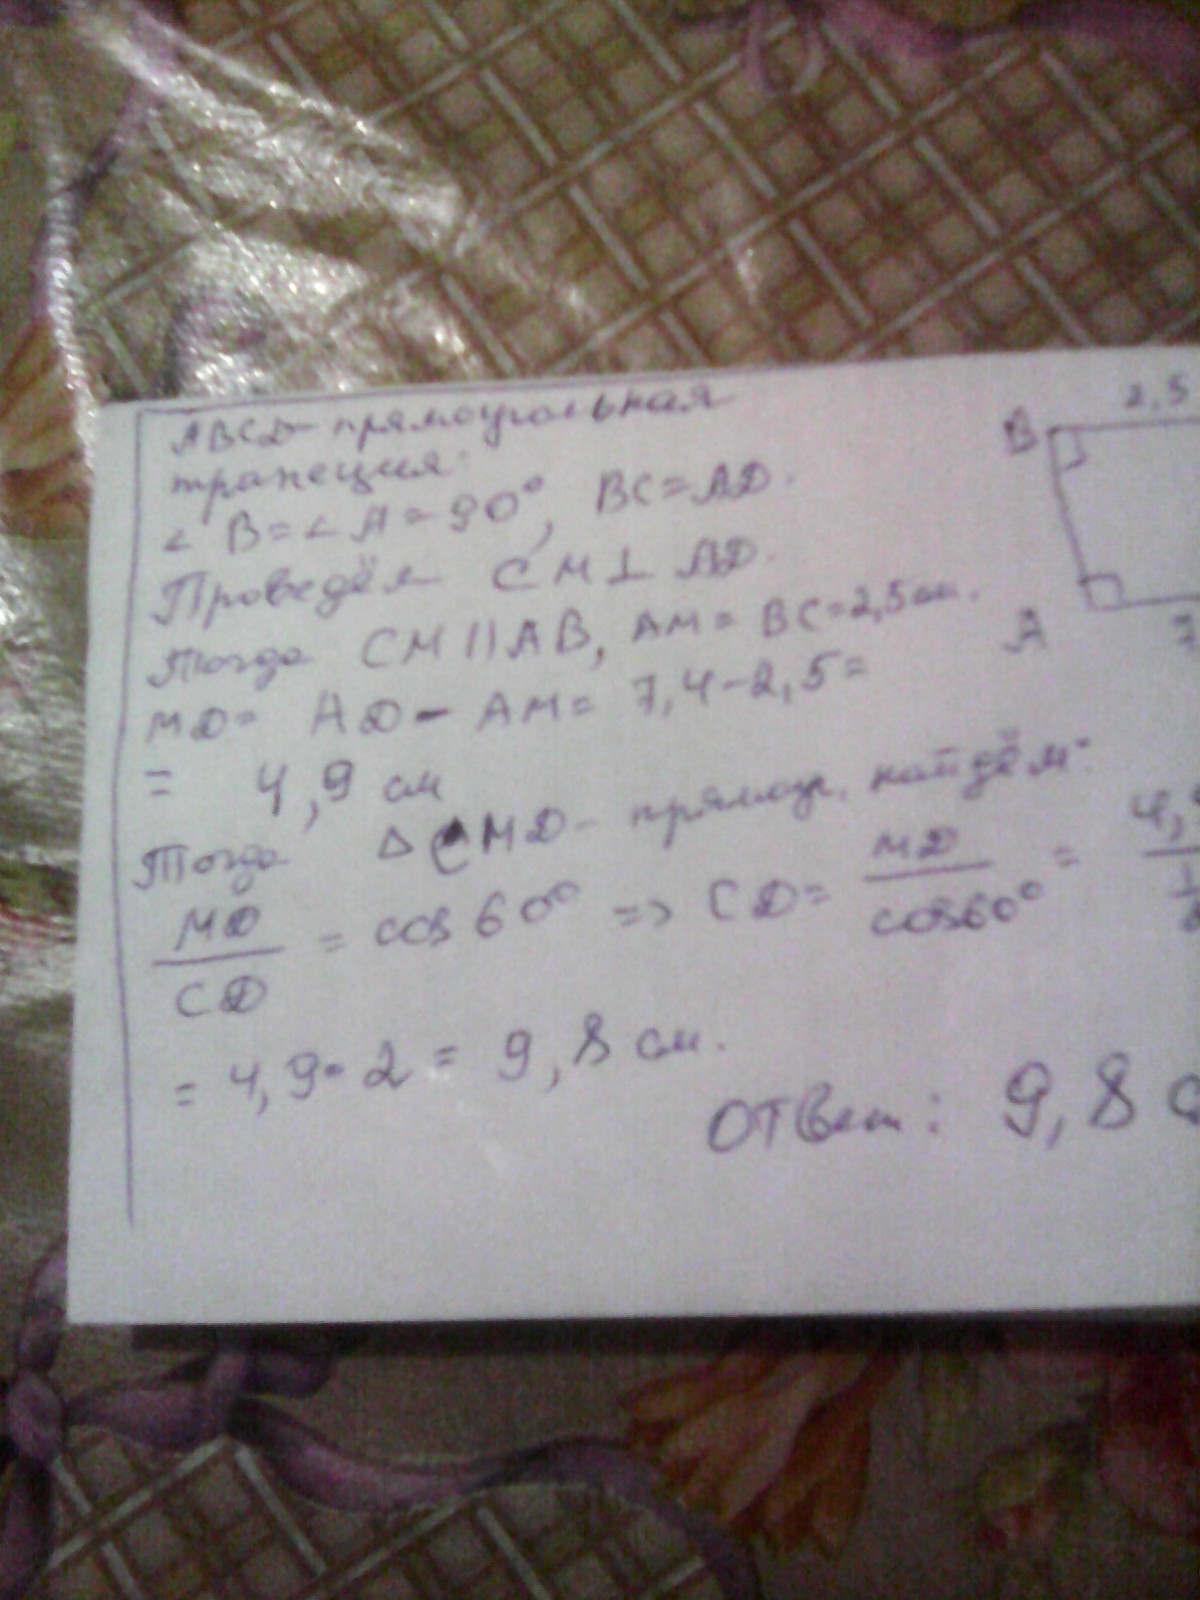 ABCD - прямоугольная
трапеция.
∠ B = ∠ A = 90°, BC = AD.
Проведём CM ⊥ AD.
Тогда CM || AB, AM = BC = 2,5 см.
MD = AD - AM = 7,4 - 2,5 =
= 4,9 см
Тогда △ CMD - прямоуг. найдём:
MD/CD = cos 60° => CD = MD/cos60° = 4,9
= 4,9 · 2 = 9,8 см.
Ответ: 9,8 с
2,5
B
A
7